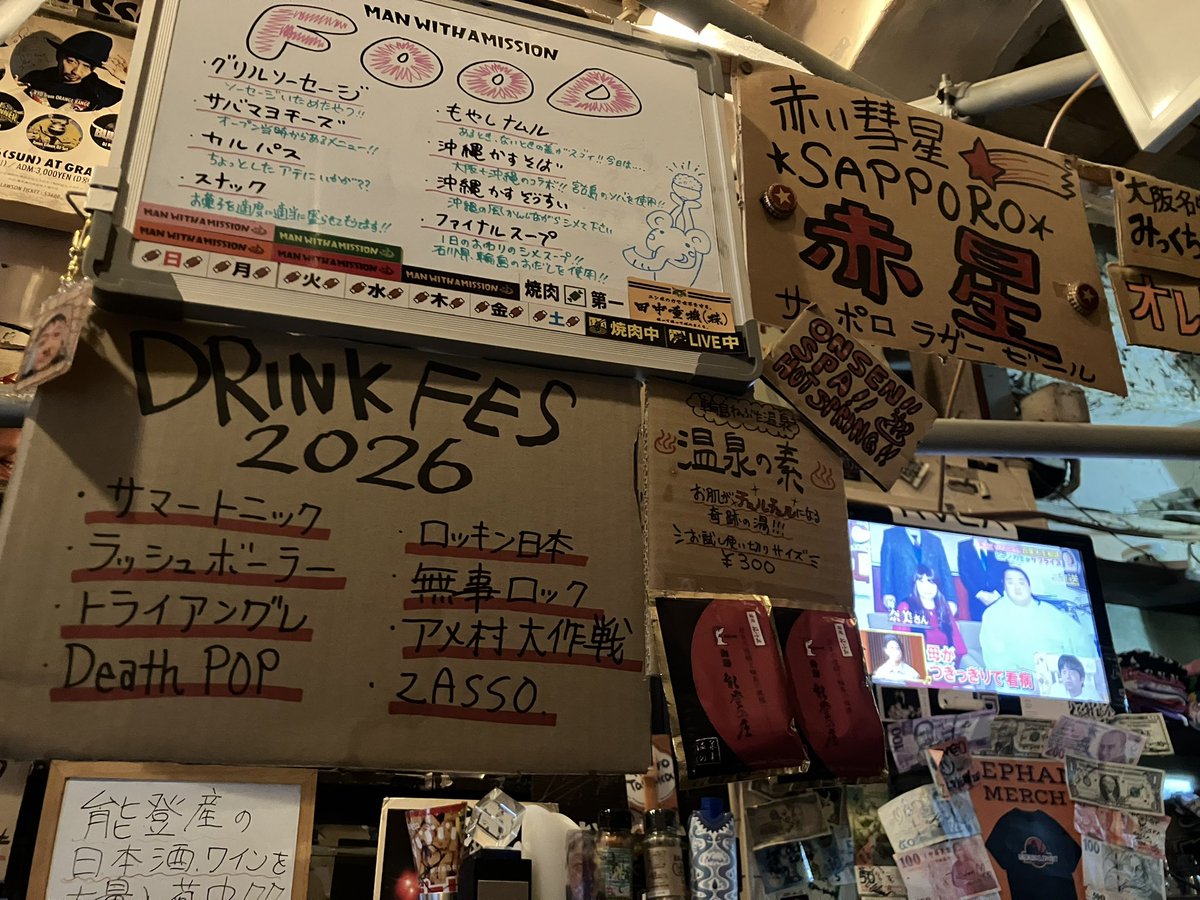 MAN WITH A MISSION
FOOD
・グリルソーセージ
ソーセージいためたやつ!!
・サバマヨチーズ
オープン当時からあるメニュー!!
・カルパス
ちょっとしたアテにいかが??
・スナック
お菓子を適度に適当に盛らせてもらいます!!
・もやしナムル
あるとき、ないときの差がスゴイ!!今日は…
・沖縄かすそば
大阪&沖縄のコラボ!!宮古島のソバを使用!!
・沖縄かすぞうすい
沖縄の風かんじながらシメて下さい
・ファイナルスープ
1日のおわりのシメスープ!!
石川県、輪島のおだしを使用!!
MAN WITH A MISSION
MAN WITH A MISSION
MAN WITH A MISSION
MAN WITH A MISSION
MAN WITH A MISSION
日 月 火 水 木 金 土
焼肉 第一
田中重機(株)
焼肉中 LIVE中
赤い彗星
*SAPPORO*
赤星
サッポロ ラガービール
大阪名
みっくち
オレ
ONSEN!!
SPA!!
HOT SPRING!!
DRINK FES
2026
・サマートニック
・ラッシュボーラー
・トライアングレ
・Death POP
・ロッキン日本
・無事ロック
・アメ村大作戦
・ZASSO.
輪島ねぶた温泉
温泉の素
お肌がチュルチュルになる
奇跡の湯!!!
お試し使い切りサイズ
¥300
奈美さん
母が
つきっきりで看病
能登産の
日本酒、ワインを
EPHAN
MERCH
(SUN) AT GRA
ADM:3,000YEN
100
50